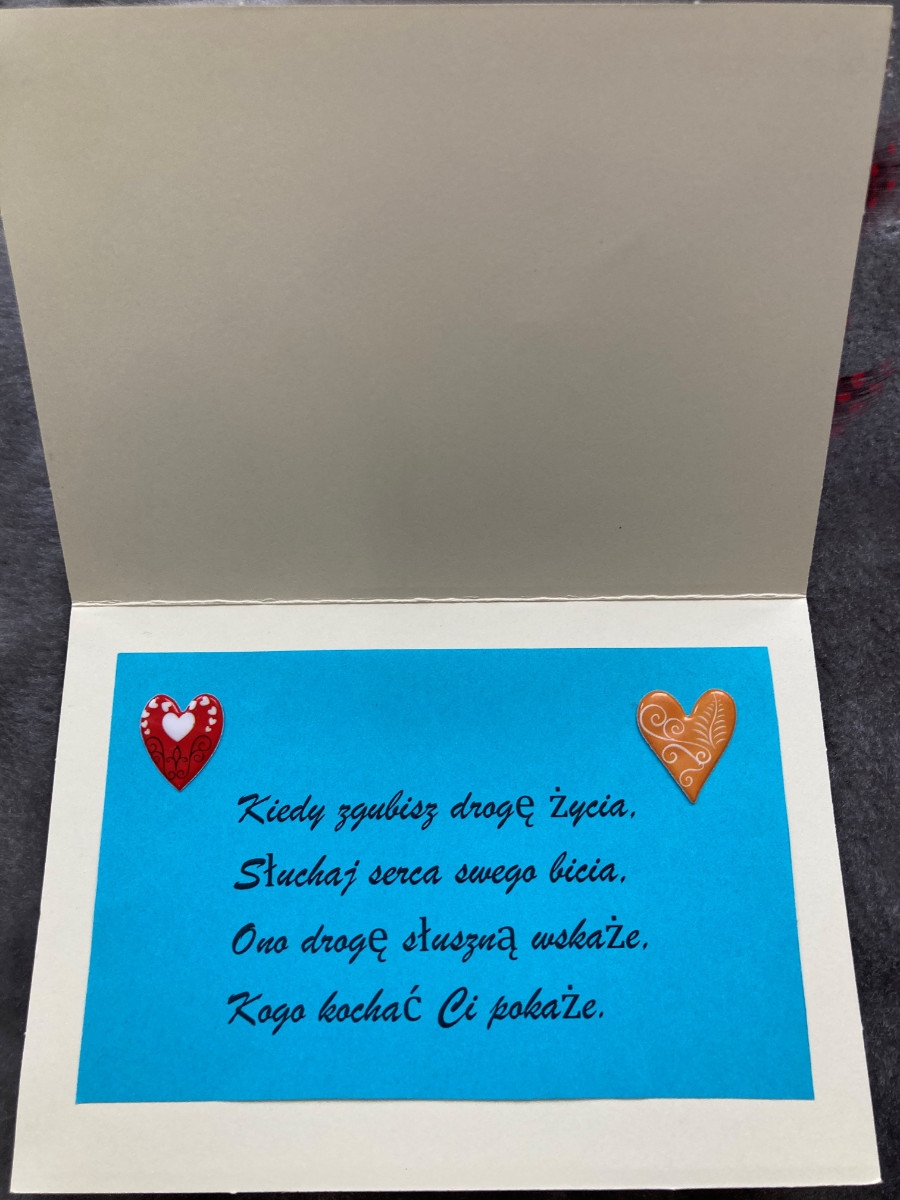 Kiedy zgubisz drogę życia,
Słuchaj serca swego bicia,
Ono drogę słuszną wskaże,
Kogo kochać Ci pokaże.